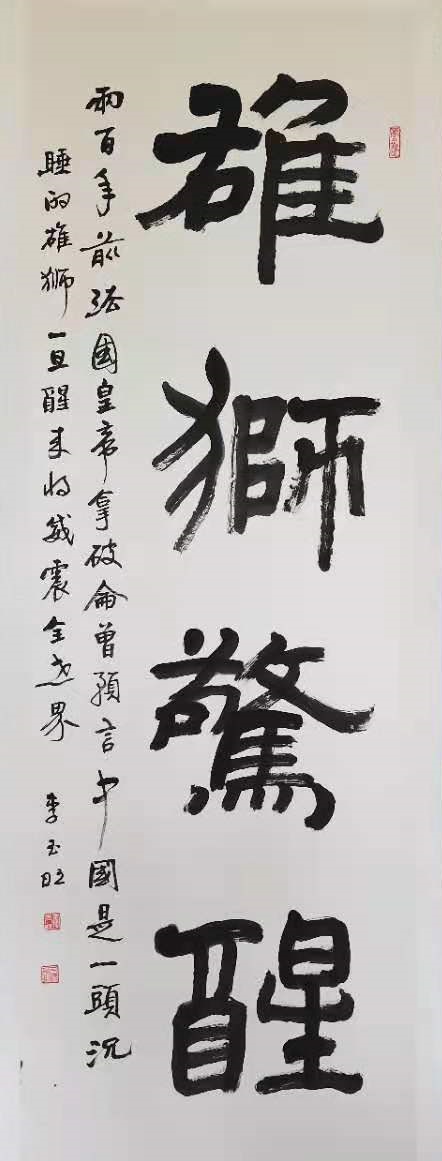 雄獅驚醒
兩百年前法國皇帝拿破侖曾預言中國是一頭沉
睡的雄獅一旦醒来将威震全世界
李玉